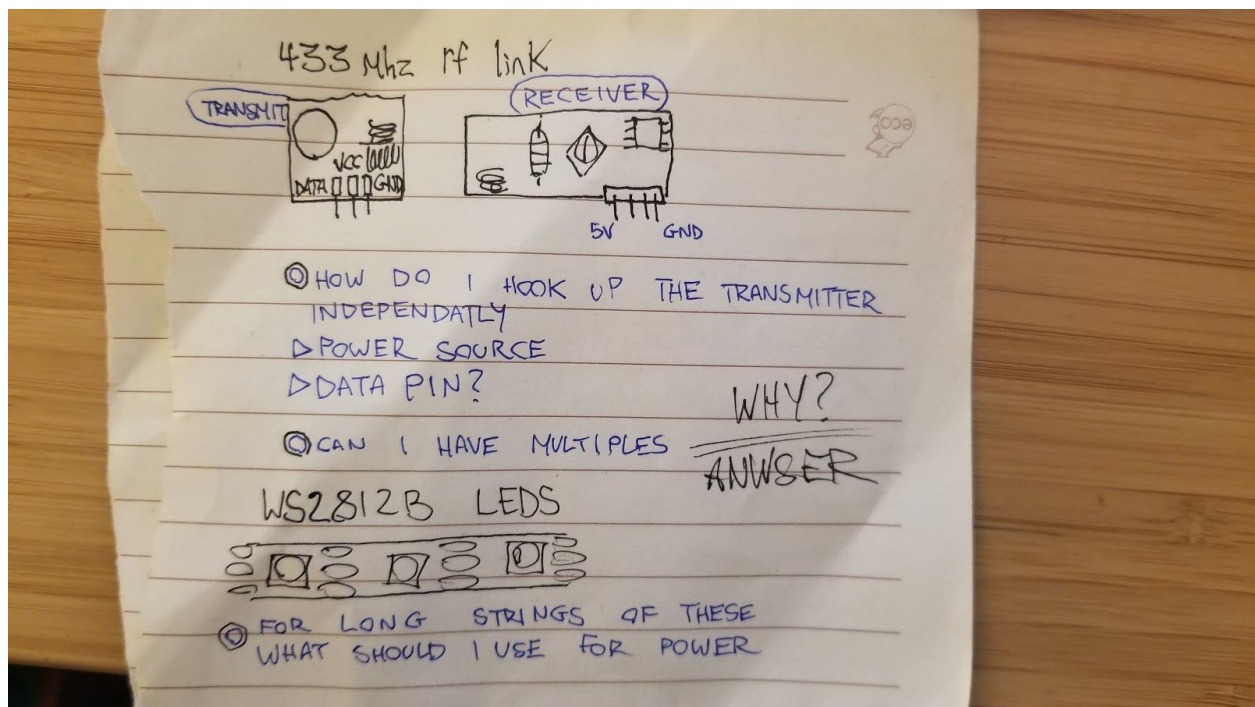 433 Mhz rf link
TRANSMIT
RECEIVER
eco
VCC
DATA GND
5V GND
HOW DO I HOOK UP THE TRANSMITTER
INDEPENDATLY
POWER SOURCE
DATA PIN?
WHY?
CAN I HAVE MULTIPLES
ANWSER
WS2812B LEDS
FOR LONG STRINGS OF THESE
WHAT SHOULD I USE FOR POWER